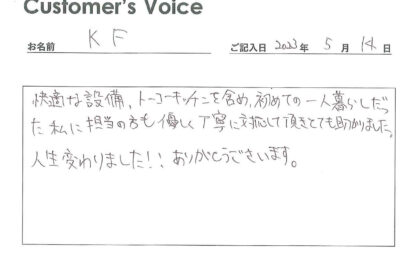 Customer's Voice
お名前 K F ご記入日 2023 年 5 月 14 日
快適な設備、トーコーキッチンを含め、初めての一人暮らしだっ
た私に担当の方も優しく丁寧に対応して頂きとても助かりました。
人生変わりました!!ありがとうございます。